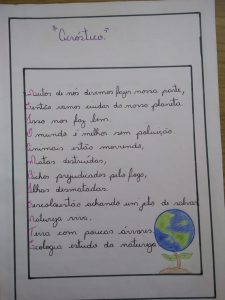 "Acróstico."
Muitos de nós devemos fazer nossa parte,
Então vamos cuidar do nosso planeta
Isso nos faz bem.
O mundo é melhor sem poluição.
Animais estão morrendo,
Matas destruídas,
Bichos prejudicados pelo fogo,
Ilhas desmatadas.
estão achando um jeito de salvar
Natureza viva.
Terra com poucas árvores.
Ecologia estudo da natureza.